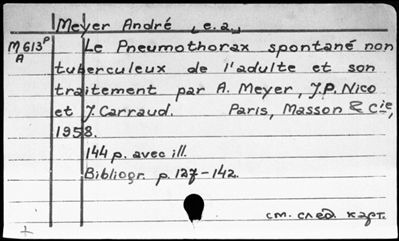 Meyer André [e.a]
M613P
A
Le Pneumothorax spontané non
tuberculeux de l'adulte et son
traitement par A. Meyer, J.P. Nico
et J. Carraud. Paris, Masson & Cie,
1958.
144 p. avec ill.
Bibliogr. p. 127-142.
см. след карт.